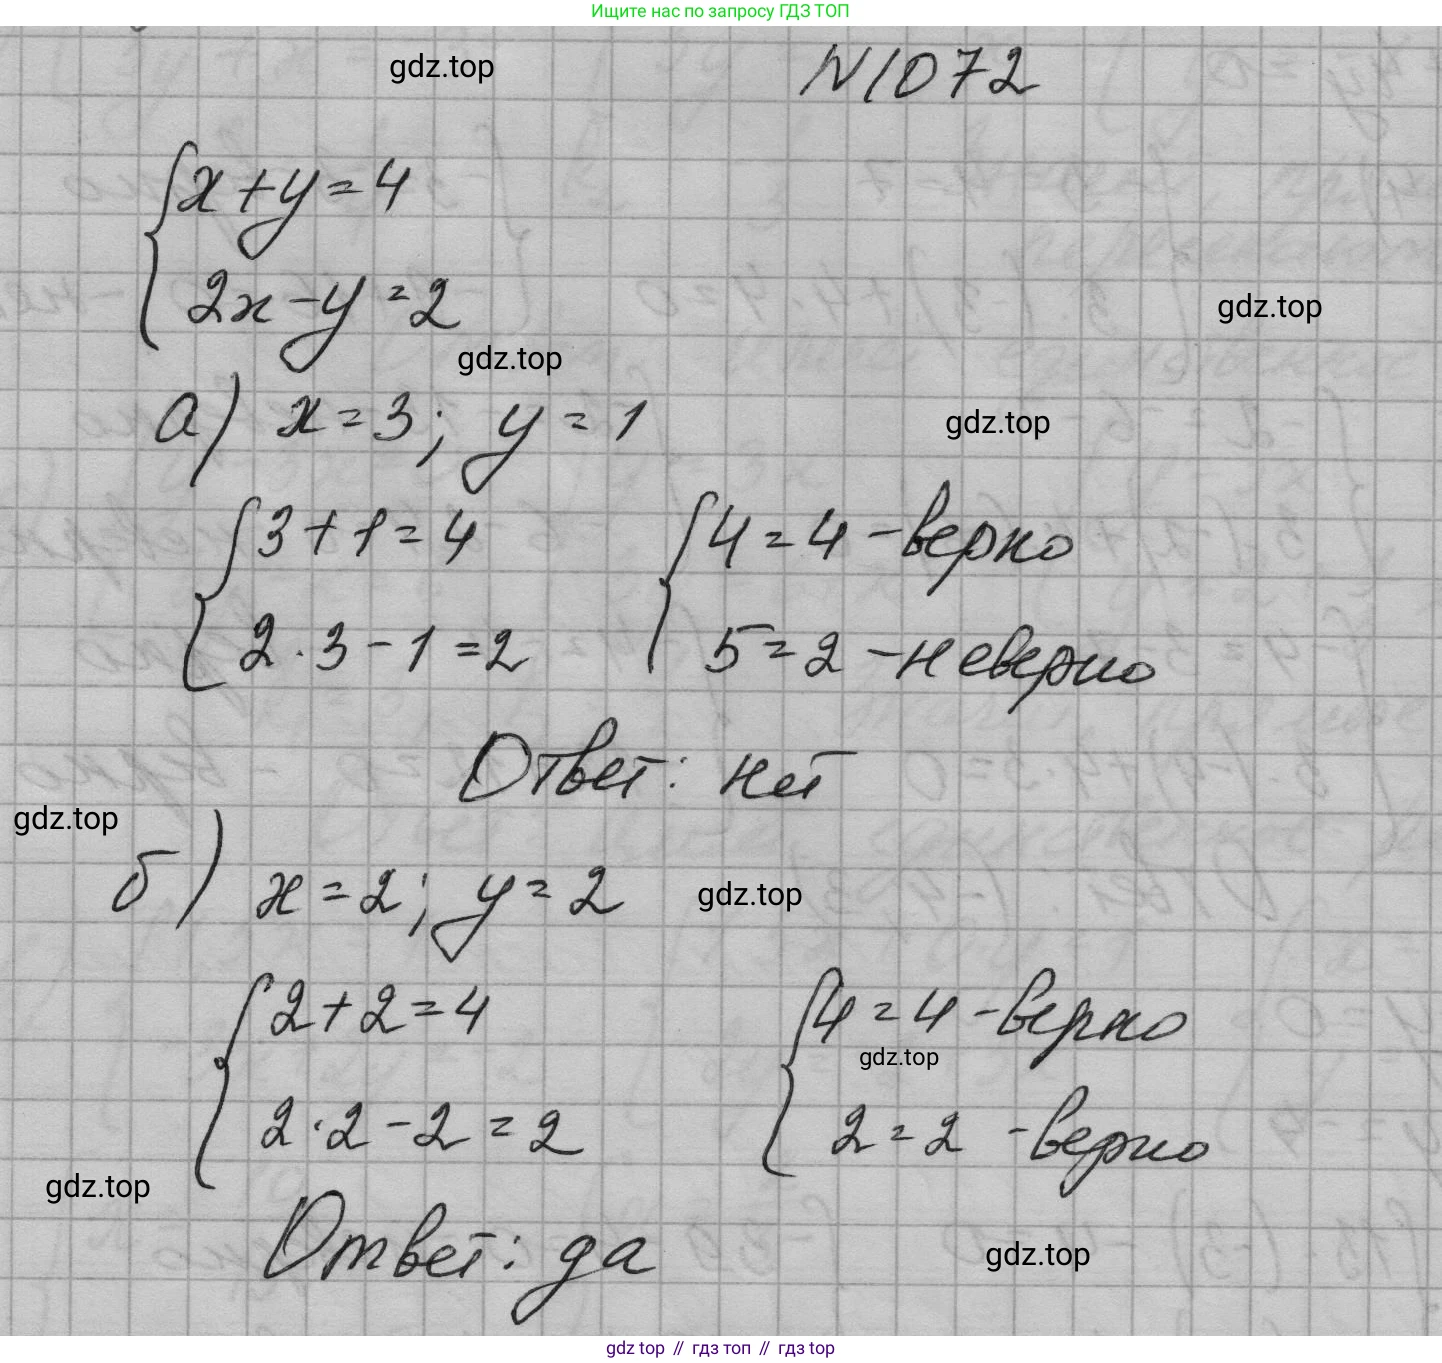 Ищите нас по запросу ГДЗ ТОП
gdz.top
N1072
{x+y=4
2x-y=2
gdz.top
gdz.top
а) x=3; y=1
gdz.top
{3+1=4 {4=4 -верно
2·3-1=2 5=2 -неверно
Ответ: нет
gdz.top
б) x=2; y=2
gdz.top
{2+2=4 {4=4 -верно
gdz.top
2·2-2=2 2=2 -верно
gdz.top
Ответ: да
gdz.top
gdz top // гдз топ // гдз top